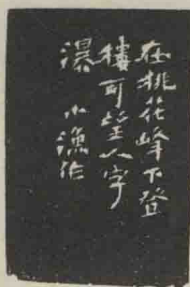 在桃花峰下登
楼可望人字
瀑 小漁作